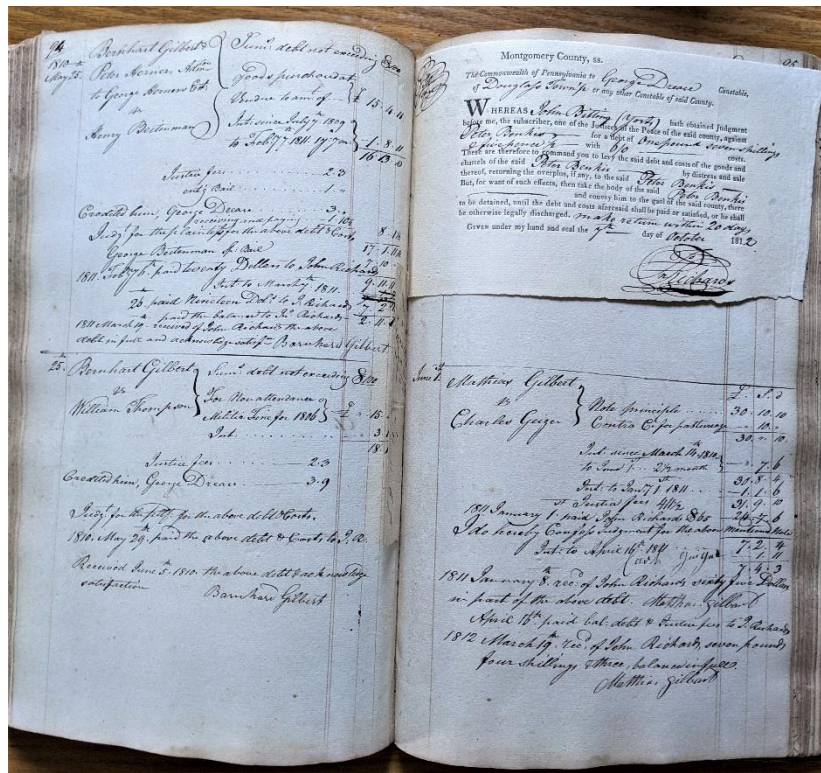 94
1810 Bernhart Gilbert & Sum debt not exceeding $100
May 25. Peter Horner Admr Goods purchased at
to George Horners Est. Vendue to amt of £ 15.4.11
vs Int. since July 7th 1809
Henry Bestenman to Feb 7th 1811. 1.8.11
16.13.10
Justice fees 2.3
entg Bail 1.
Credited him, George Dreare 3.
receiving and paying 1.10½
Judgt for the plaintiff for the above debt & Costs 8.1½
George Bestenman Sp. Bail 17.1.11½
1811. Feb 7 6th paid twenty Dollars to John Richards 7.10.
Int. to March 7 1811. 9.11.11
26 paid Nineteen Dolrs to J. Richards 7.2.
paid the balance to Jno Richards 2.11.
1811 March 19. received of John Richards the above
debt in full and acknowledge satisfn Barnhard Gilbert
25. Bernhart Gilbert Sum debt not exceeding $100
vs For Non attendance
William Thompson Militia Fine for 1806 £ .15.
Int. 3
18
Justice fees 2.3
Credited him, George Dreare 3.9
Judgt for the pltff. for the above debt & Costs.
1810. May 29. paid the above debt & Costs to J. R.
Received June 5. 1810. the above debt & acknowledge
satisfaction Barnhard Gilbert
95
Montgomery County, ss.
The Commonwealth of Pennsylvania to George Dreare Constable,
of Douglass Townsp or any other Constable of said County.
WHEREAS John Bitting (York) hath obtained Judgment
before me, the subscriber, one of the Justices of the Peace of the said county, against
Peter Benkis for a debt of One pound seven shillings
& five pence ½ with 6/0 costs.
These are therefore to command you to levy the said debt and costs of the goods and
chattels of the said Peter Benkis by distress and sale
thereof, returning the overplus, if any, to the said Peter Benkis
But, for want of such effects, then take the body of the said Peter Benkis
and convey him to the gaol of the said county, there
to be detained, until the debt and costs aforesaid shall be paid or satisfied, or he shall
be otherwise legally discharged. make return within 20 days
GIVEN under my hand and seal the 7th day of October 1812
Jn Richards
June 1st Mathias Gilbert £ S. d
vs Note principle 30.10.10
Charles Geiger Contra Cr. for pasturage .10.
30..10
Int. since March 14th 1810
to June 1st 2½ month .7.6
31.8.4
Int. to Jany 1 1811 1.1.6
Justice fees 4/1½ 31.9.10
1811 January 1st paid John Richards $65 24.7.6
I do hereby Confess judgment for the above mentioned
Int. to April 16th 1811 7.2.4
1.11
7.4.3
1811 January 8. recd of John Richards sixty five Dollars
in part of the above debt. Matthias Gilbert
April 16th paid bal. debt & Justice fees to J. Richards
1812 March 19th. recd of John Richards, seven pounds
four shillings & three, balance in full
Matthias Gilbert